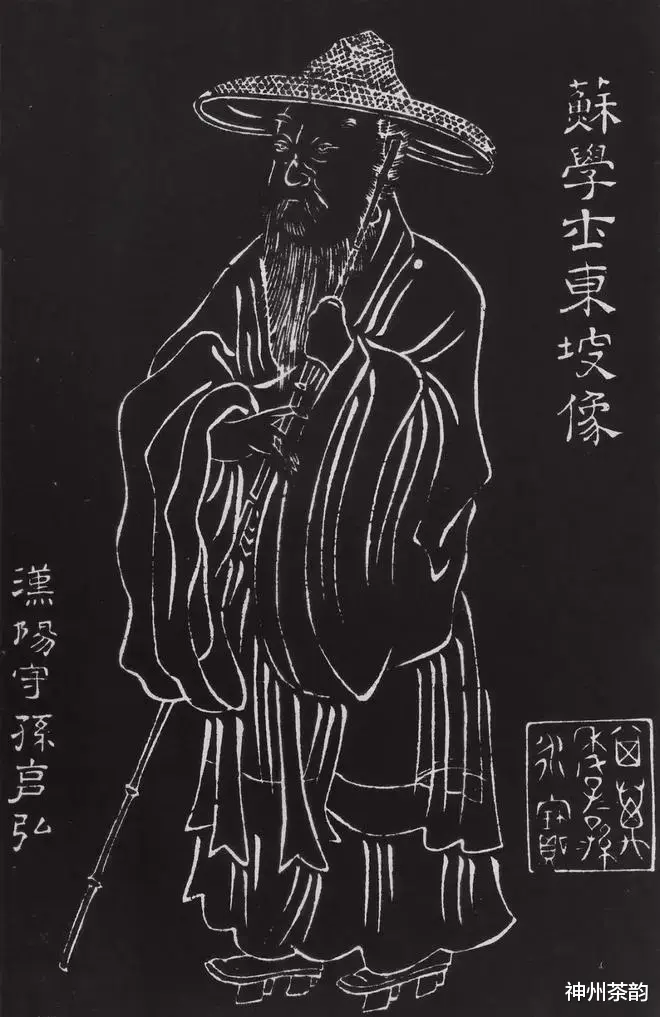 蘇學士東坡像
漢陽守孫克弘
神州茶韵